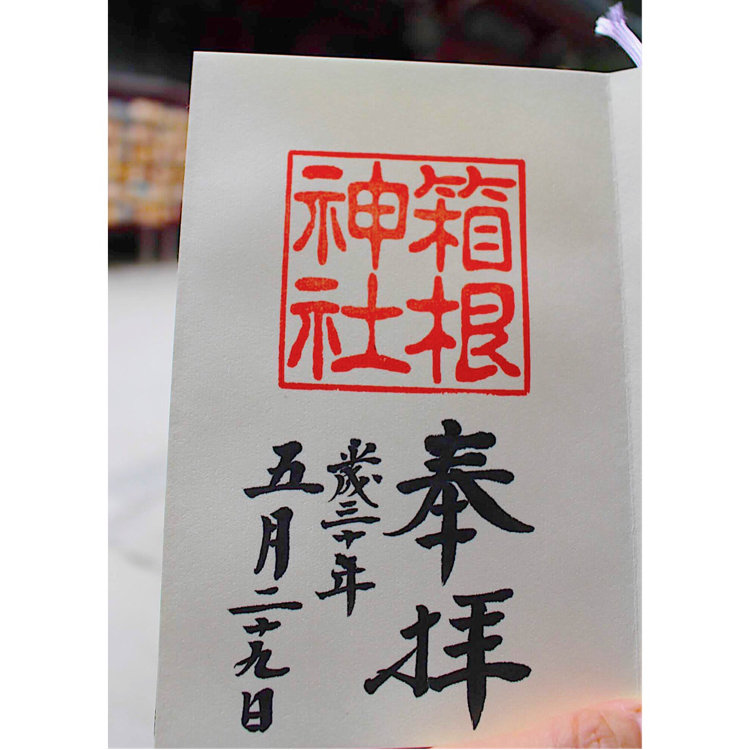 箱根
神社
奉拝
平成三十年
五月二十九日